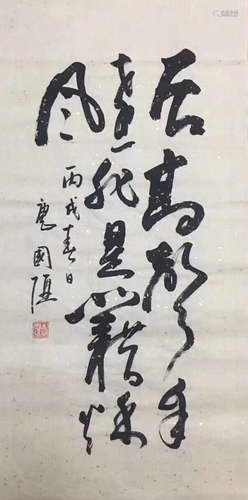 居高聲自
遠非是藉秋
風
丙戌春日
國